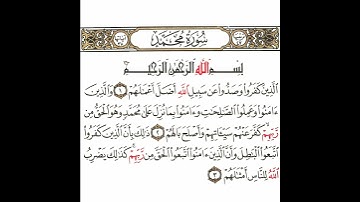 سُورَةُ مُحَمَّد
بِسْمِ اللَّهِ الرَّحْمَٰنِ الرَّحِيمِ
الَّذِينَ كَفَرُوا وَصَدُّوا عَن سَبِيلِ اللَّهِ أَضَلَّ أَعْمَالَهُمْ ١ وَالَّذِينَ
ءَامَنُوا وَعَمِلُوا الصَّالِحَاتِ وَءَامَنُوا بِمَا نُزِّلَ عَلَىٰ مُحَمَّدٍ وَهُوَ الْحَقُّ مِن
رَّبِّهِمْ كَفَّرَ عَنْهُمْ سَيِّئَاتِهِمْ وَأَصْلَحَ بَالَهُمْ ٢ ذَٰلِكَ بِأَنَّ الَّذِينَ كَفَرُوا
اتَّبَعُوا الْبَاطِلَ وَأَنَّ الَّذِينَ ءَامَنُوا اتَّبَعُوا الْحَقَّ مِن رَّبِّهِمْ كَذَٰلِكَ يَضْرِبُ
اللَّهُ لِلنَّاسِ أَمْثَالَهُمْ ٣